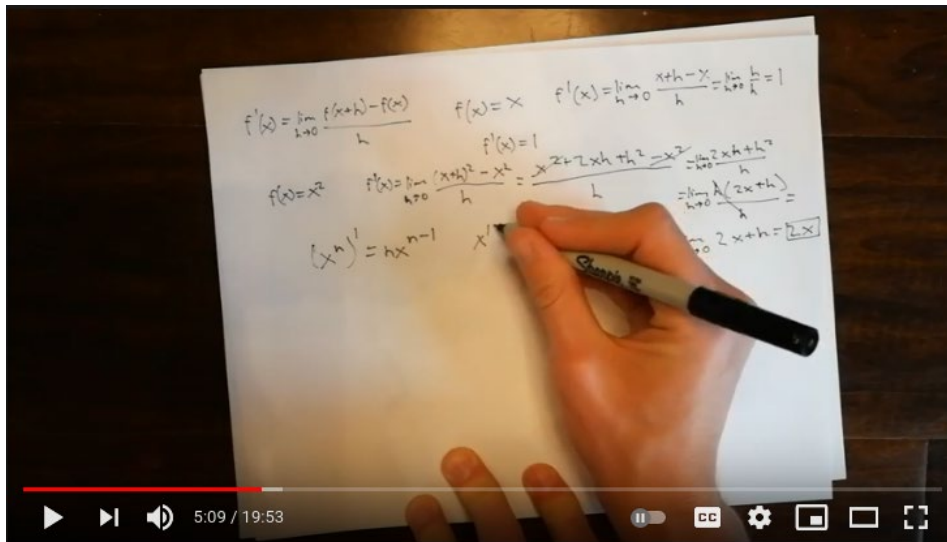 f'(x) = lim h→0 f(x+h) - f(x) / h    f(x) = x    f'(x) = lim h→0 x+h-x / h = lim h→0 h/h = 1
f'(x) = 1
f(x) = x²    f'(x) = lim h→0 (x+h)² - x² / h = x² + 2xh + h² - x² / h = lim h→0 2xh + h² / h
= lim h→0 h(2x+h) / h =
(xⁿ)' = nxⁿ⁻¹    x' 2x+h = 2x
Sharpie
5:09 / 19:53
CC